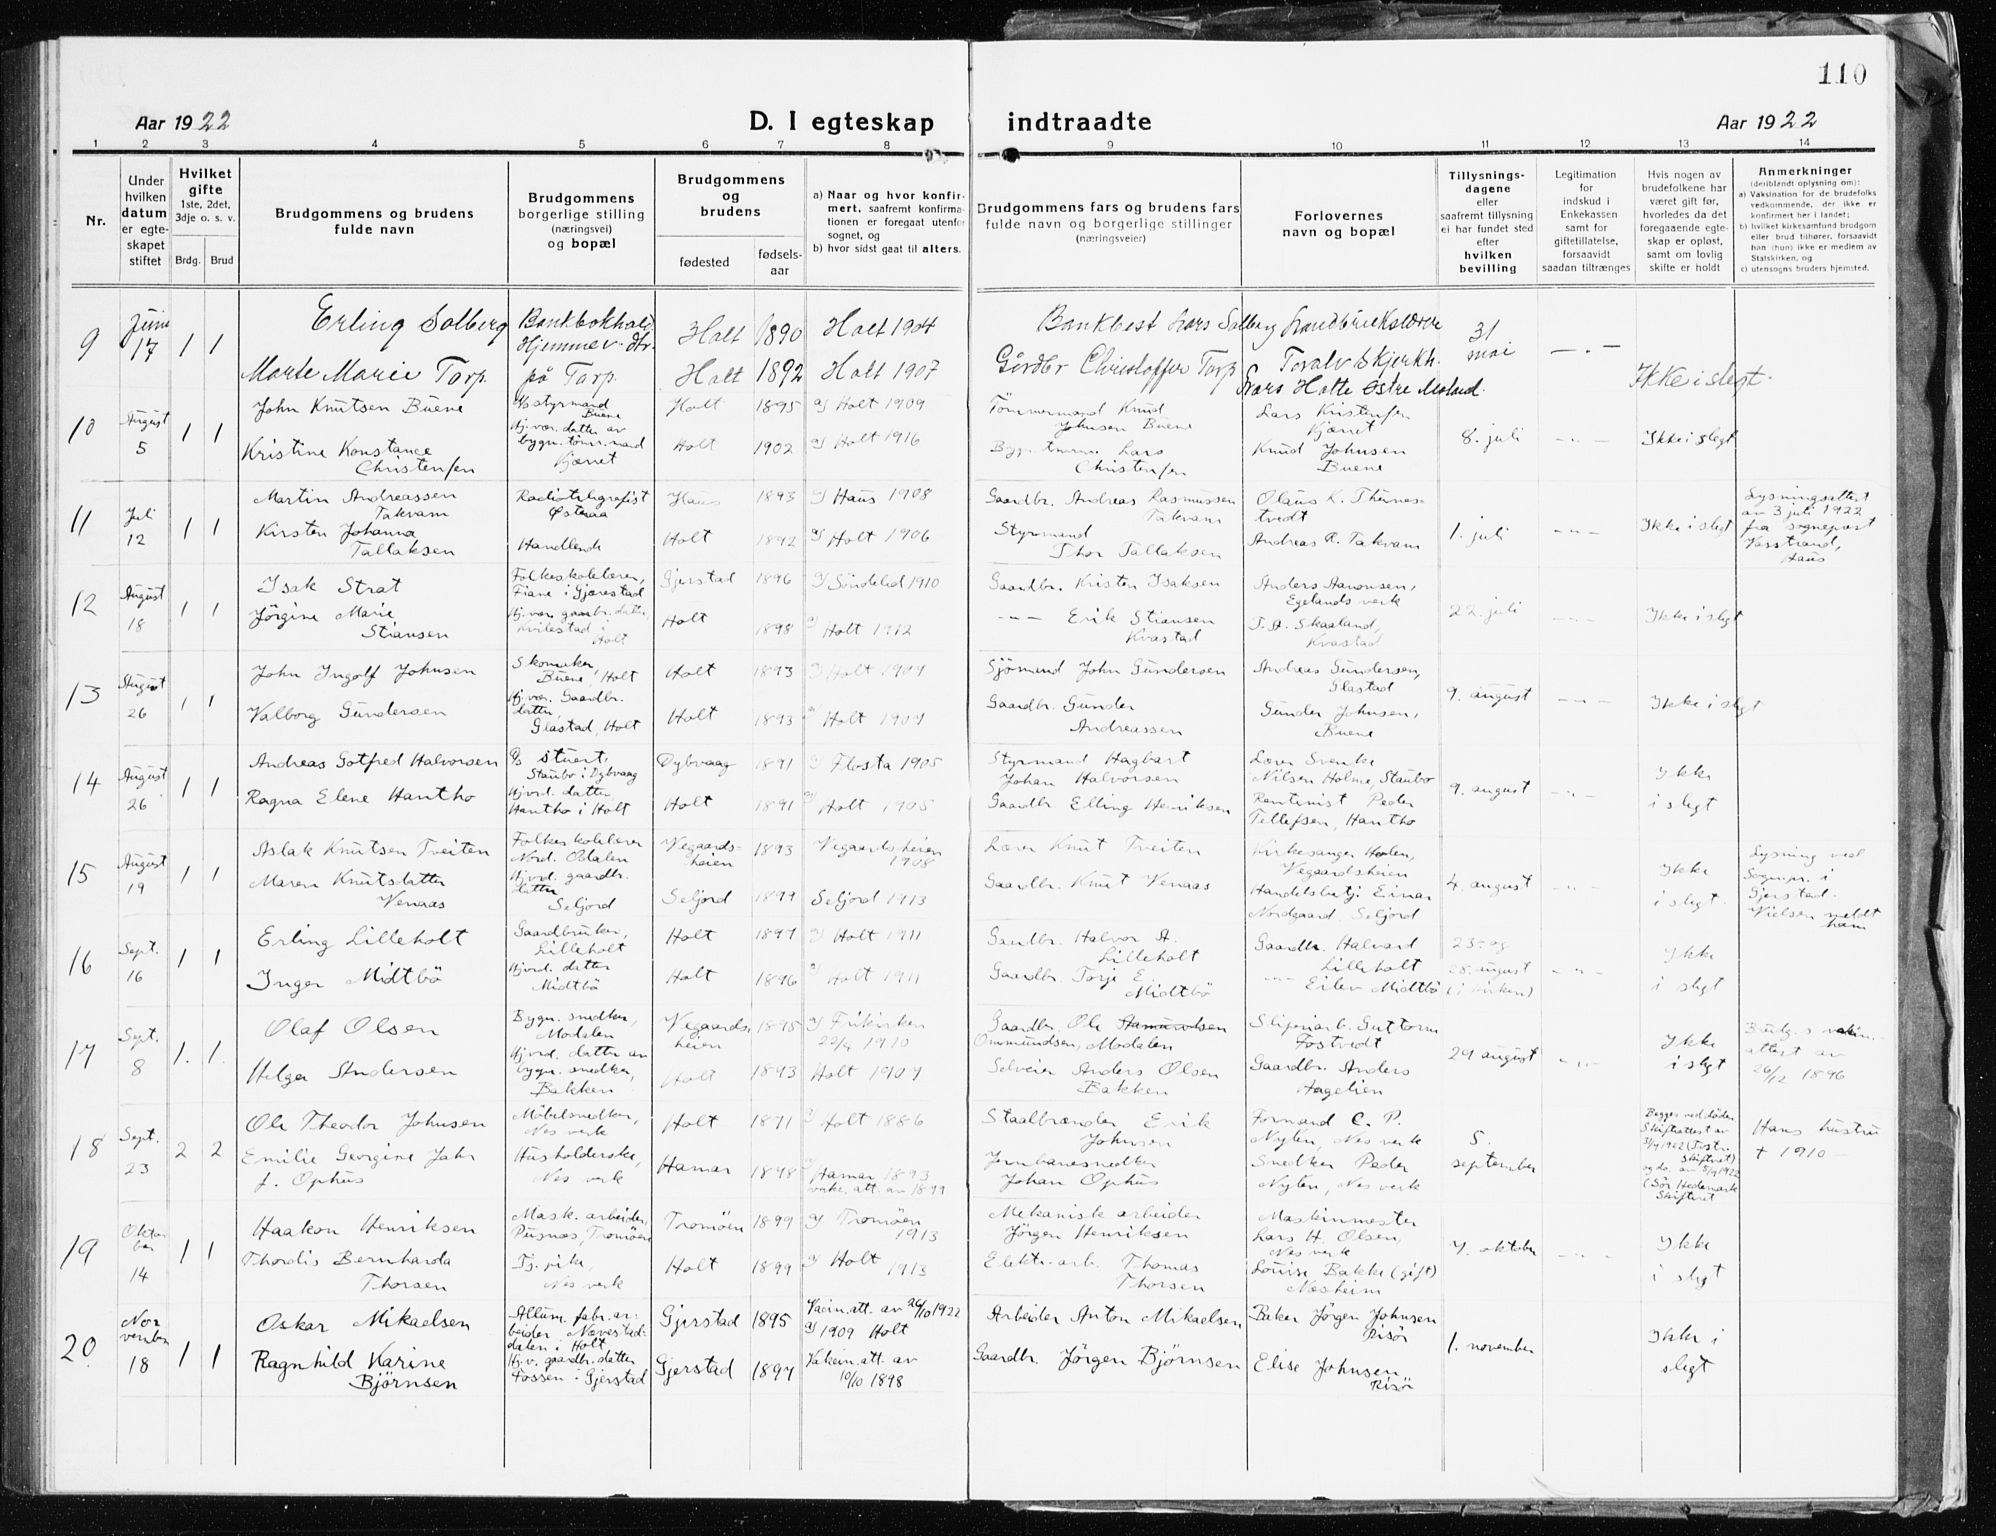 110
Aar 1922
D. I egteskap
indtraadte
Aar 1922
1 2 3 4 5 6 7 8 9 10 11 12 13 14
Nr.
Under
hvilken
datum
er egte-
skapet
stiftet
Hvilket
gifte
1ste, 2det,
3dje o. s. v.
Brdg. Brud
Brudgommens og brudens
fulde navn
Brudgommens
borgerlige stilling
(næringsvei)
og bopæl
Brudgommens
og
brudens
fødested
fødsels-
aar
a) Naar og hvor konfir-
mert, saafremt konfirma-
tionen er foregaat utenfor
sognet, og
b) hvor sidst gaat til alters.
Brudgommens fars og brudens fars
fulde navn og borgerlige stillinger
(næringsveier)
Forlovernes
navn og bopæl
Tillysnings-
dagene
eller
saafremt tillysning
ei har fundet sted
efter
hvilken
bevilling
Legitimation
for
indskud i
Enkekassen
samt for
giftetillatelse,
forsaavidt
saadan tiltrænges
Hvis nogen av
brudefolkene har
været gift før,
hvorledes da det
foregaaende egte-
skap er opløst,
samt om lovlig
skifte er holdt
Anmerkninger
(deriblandt oplysning om):
a) Vaksination for de brudefolks
vedkommende, der ikke er
konfirmert her i landet;
b) hvilket kirkesamfund brudgom
eller brud tilhører, forsaavidt
han (hun) ikke er medlem av
Statskirken, og
c) utensogns bruders hjemsted.
9
Juni
17
1 1
Erling Solberg
Hjemmev. dtr.
Holt 1890 Holt 1904
31
mai
Marte Marie Torp
på Torp
Holt 1892 Holt 1907
Gårdbr Christoffer Torp
Lars Holte Østre Moland
Ikke i slegt.
10
August
5
1 1
John Knutsen Buene
styrmand
Buene
Holt 1895 a) Holt 1909
Tömmermand Knud
Johnsen Buene
Lars Kristensen
Kjærret
8. juli
Kristine Konstance
Christensen
Hj.vær. datter av
bygn. tömr. mand
Kjærret
Holt 1902 a) Holt 1916
Lars
Christensen
Knud Johnsen
Buene
Ikke i slegt
11
Juli
12
1 1
Martin Andreassen
Takvam
Radiotelegrafist
Østeraa
Haus 1893 a) Haus 1908
Gaardbr. Andreas Rasmussen
Takvam
Olaus K. Thernes-
tvedt
1. juli
Kirsten Johanna
Tallaksen
Handlende
Holt 1892 a) Holt 1906
Styrmand
Thor Tallaksen
Andreas R. Takvam
Ikke i slegt
Lysningsattest
av 3 juli 1922
fra sogneprest
Vasstrand,
Haus
12
August
18
1 1
Isak Strat
Folkeskolelærer,
Fiane i Gjerestad
Gjerstad 1896 a) Söndeled 1910
Gaardbr. Kristen Isaksen
Anders Aanonsen,
Egelands verk
22. juli
Jörgine Marie
Stiansen
Hj.vær. gaardbr. datter,
Holt
Holt 1898 a) Holt 1912
Erik Stiansen
Kvastad
T. A. Skaaland,
Kvastad
Ikke i slegt
13
August
26
1 1
John Ingolf Johnsen
Skomaker,
Buene, Holt
Holt 1893 a) Holt 1907
Sjömand John Gundersen
Andreas Gundersen,
Glastad
9. august
Valborg Gundersen
Hj.vær. Gaardbr.
datter,
Glastad, Holt
Holt 1893 a) Holt 1907
Gaardbr. Gunder
Andreassen
Gunder Johnsen,
Buene
Ikke i slegt
14
August
26
1 1
Andreas Gotfred Halvorsen
stuert,
Staubø i Dybvaag
Dybvaag 1891 a) Flosta 1905
Styrmand Hagbart
Johan Halvorsen
Lærer Svenke
Nilsen Holme, Staubo
9. august
Ragna Elene Hantho
Hjvrd. datter
Hantho i Holt
Holt 1891 a) Holt 1905
Gaardbr Elling Henriksen
Rentenist Peder
Tellefsen, Hantho
Ikke
i slegt
15
August
19
1 1
Aslak Knutsen Tveiten
Folkeskolelærer
Nord. Odalen
Vegaards-
heien 1893 Vegaardsheien
1908
Lærer Knut Tveiten
Kirkesanger Holen,
Vegaardsheien
4. august
Maren Knutsdatter
Venaas
Hjvrd. gaardbr.
datter
Seljord
Seljord 1899 Seljord 1913
Gaardbr. Knut Venaas
Handelsbetj. Einar
Nordgaard, Seljord
Ikke
i slegt
Lysning ved
Sognepr. i
Gjerstad.
Nielsen meldt
ham
16
Sept.
16
1 1
Erling Lilleholt
Gaardbruker,
Lilleholt
Holt 1897 a) Holt 1911
Gaardbr. Halvor A.
Lilleholt
Gaardbr. Halvard
Lilleholt
23. og
28. august
(i kirken)
Inger Midtbö
Hjvrd. datter
Midtbö
Holt 1896 a) Holt 1911
Gaardbr. Torje E.
Midtbö
Eilev Midtbö
Ikke
i slegt
17
Sept.
8
1. 1.
Olaf Olsen
Bygn. snedker,
Modalen
Vegaards-
heien 1895 a) Frikirken
22/4 1910
Gaardbr. Ole
Ommundsen, Modalen
Sliperiarb. Guttorm
Fostvedt
29 august
Helga Andersen
Hjvrd. datter av
bygn. snedker,
Bakken
Holt 1893 Holt 1907
Selveier Anders Olsen
Bakken
Gaardbr. Anders
Hagelien
Ikke
i slegt
Brudg.s vakcin.-
attest av
26/12 1896
18
Sept.
23
2 2
Ole Theodor Johnsen
Möbelsnedker,
Nes verk
Holt 1871 a) Holt 1886
Staalbrænder Erik
Johnsen
Formand C. P.
Nylen, Nes verk
5.
september
Emilie Georgine Jahr
f. Ophus
Husholderske,
Nes verk
Hamar 1878 Hamar 1893
vakc. att. av 1899
Jernbanesnedker
Johan Ophus
Snedker Peder
Nylen, Nes verk
Begges ved döden
Skifteattest av
(Sör Hedemark
Skifteret
Hans hustru
† 1910
19
Okto-
ber
14
1 1
Haakon Henriksen
Mask. arbeider,
Pusnes, Tromöen
Tromöen 1899 a) Tromöen
1913
Mekanisk arbeider
Jörgen Henriksen
Maskinmester
Lars H. Olsen,
Nes verk
7. oktober
Thordis Bernharda
Thorsen
Tj. pike,
Nes verk
Holt 1899 a) Holt
1913
Elektr. arb. Thomas
Thorsen
Louise Bakke (gift)
Nesheim
Ikke
i slegt
20.
Nov
vember
18
1 1
Oskar Mikaelsen
Allum. fabr. ar-
beider, Nævestad-
dalen i Holt
Gjerstad 1895 Vacin. att. av 26/10 1922
a) 1909 Holt
Arbeider Anton Mikaelsen
Baker Jörgen Johnsen
Risör
1. november
Ragnhild Karine
Björnsen
Hj.v. gaardbr. datter
Fossen i Gjerstad
Gjerstad 1897 Vakcin. att. av
10/10 1898
Gaardbr. Jörgen Björnsen
Elise Johnsen
Risör
Ikke i
slegt